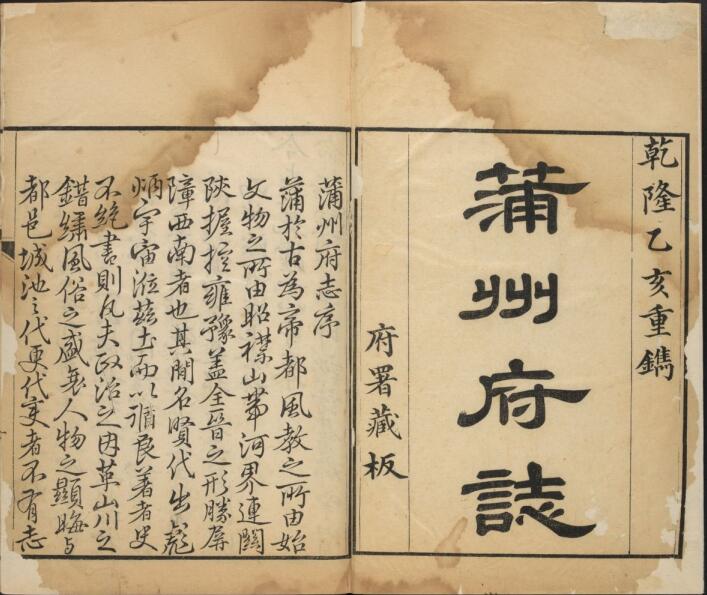 乾隆乙亥重鐫
蒲州府誌
府署藏板
蒲州府志序
蒲於古為帝都風教之所由始
文物之所由昭襟山帶河界連關
陝握控雍豫蓋全晉之形勝屏
障西南者也其間名賢代出彪
炳宇宙涖茲土而以循良著者史
不絶書則凡夫政治之因革山川之
錯繡風俗之盛衰人物之顯晦与
都邑城池之代更代变者不有志